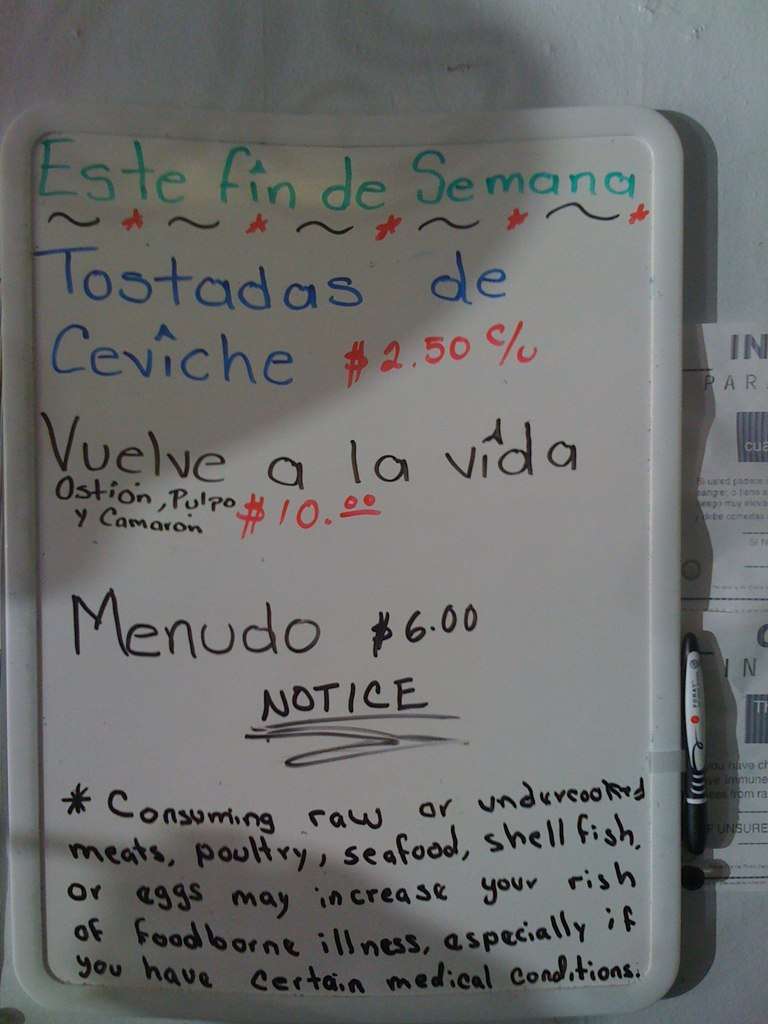 Este fin de Semana
~ * ~ * ~ * ~ * ~ *
Tostadas de
Ceviche $2.50 c/u
Vuelve a la vida
Ostion, Pulpo
y Camaron $10.00
Menudo $6.00
NOTICE
* Consuming raw or undercooked
meats, poultry, seafood, shell fish,
or eggs may increase your rish
of foodborne illness, especially if
you have certain medical conditions.
IN
PAR
cua
IN
TH
you have ch
F UNSURE